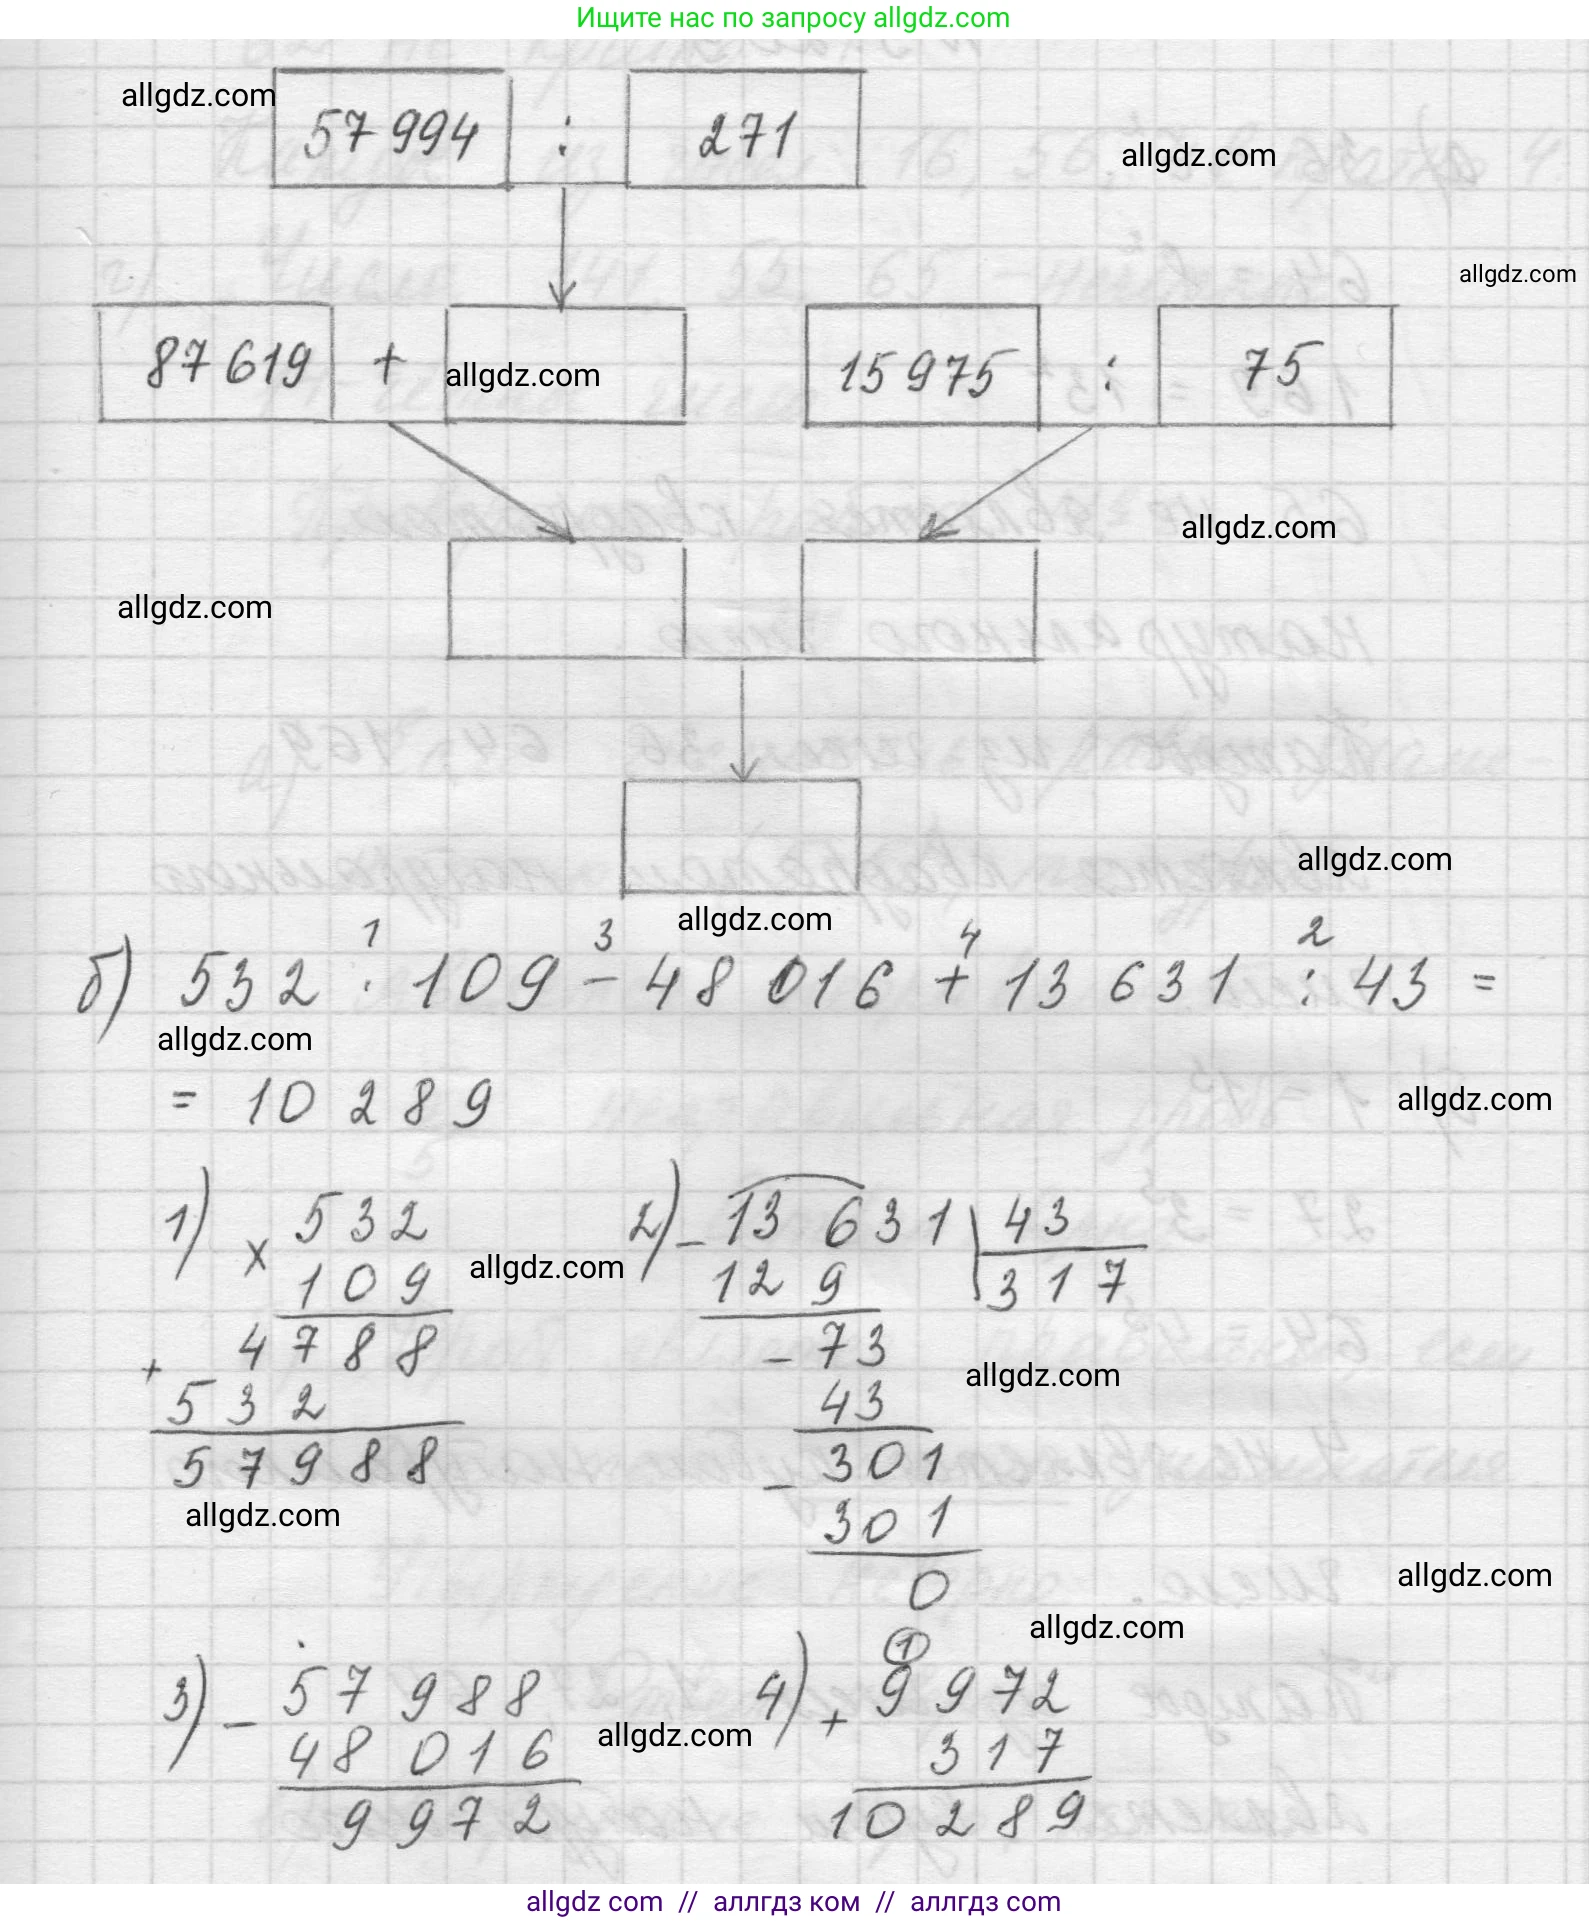 Ищите нас по запросу allgdz.com
allgdz.com
57 994 : 271
allgdz.com
allgdz.com
87 619 +
allgdz.com
15 975 : 75
allgdz.com
allgdz.com
allgdz.com
allgdz.com
1 3 4 2
б) 532 · 109 - 48 016 + 13 631 : 43 =
allgdz.com
= 10 289
allgdz.com
1) × 532
109
4788
+ 532
57988
allgdz.com
allgdz.com
2) - 13 631 | 43
129 317
- 73
43
- 301
301
0
allgdz.com
allgdz.com
allgdz.com
3) - 57 988
48 016
9 972
allgdz.com
1
4) + 9 972
317
10 289
allgdz com // аллгдз ком // аллгдз com